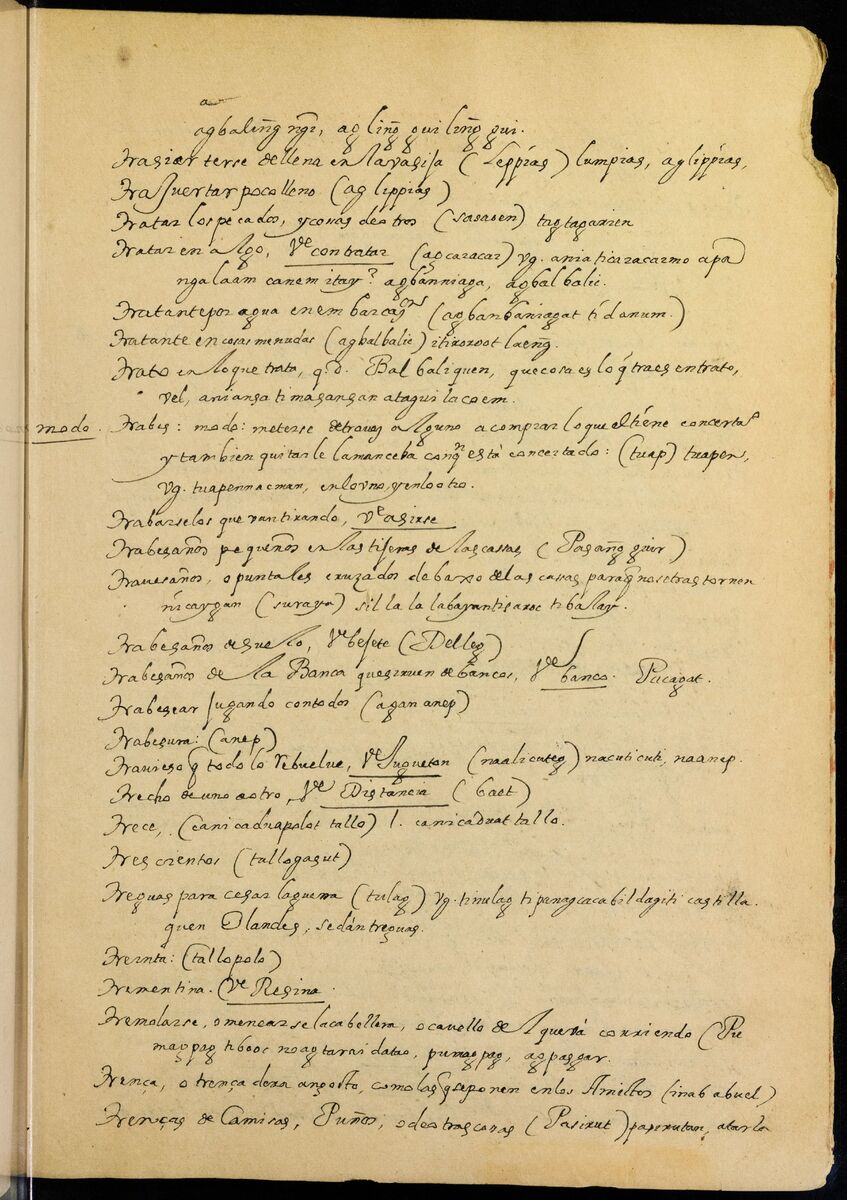 a
agbalin̄g n̄gi, ag lin̄g gui lin̄g gui.
terse de llena en la vasija (Leppias) lumpias, aglippias,
poco lleno (ag lippias)
tratar los pecados, y cosas de otros (sasaoen) tagtagarien
tratar en algo, Ve contratar (agcaracar) vg. ania ti caracarmo apan
ngalaam canem itay? agbanniaga, agbalbalic.
tratante por agua en embarcaçon (agbanbaniagat ti danum.)
tratante en cosas menudas (agbalbalic) laen̄g.
trato en lo que trata, q.d. Balbaliquen, que cosa es lo q̄ traes en trato,
vel,
modo. trabes: modo: meterse de traves alguno a comprar lo que el otro tiene
y tambien quitarle la manceba con qn está concertado: (tuap) tuapen,
vg. tuapennacman, en lo vno, y en lo otro.
trabarse los que van tirando, Ve asirse
trabesaños pequeños en las tiseras de las casas (Pasan̄g)
travesaños, o puntales cruzados debaxo de las casas para q̄ no se trastornen
ni caygan (suraya)
trabesaños de suelo, Ve bejete (Delleg)
trabesaños de la Banca que sirven de bancos, Ve banco. Pucagat.
trabesear jugando con todos (agananep)
trabesura: (anep)
travieso q̄ todo lo rebuelve, Ve Jugueton (naalicuteg) nacuticuti, naanep.
trecho de uno a otro, Ve Distancia (baet)
trece, (canicaduapolot tallo) l. canicaduat tallo.
trescientos (tallogasut)
treguas para cesar la guerra (tulag) vg. tinulag ti panagcacabil dagiti castilla.
quen Olandes, se dan treguas.
treinta: (tallopolo)
trementina. (Ve Resina
tremolarse, o menearse la cabellera, o cavello de el que vá corriendo (Pu
magpag ti booc no agtarai datao, pumagpag, agpaggar.
trença, o trença dera angosto, como las q̄ se ponen en los Amitos (inababuel)
trenças de Camisas, Puños, o de otras cosas (Pasirut) paperutan, atarla